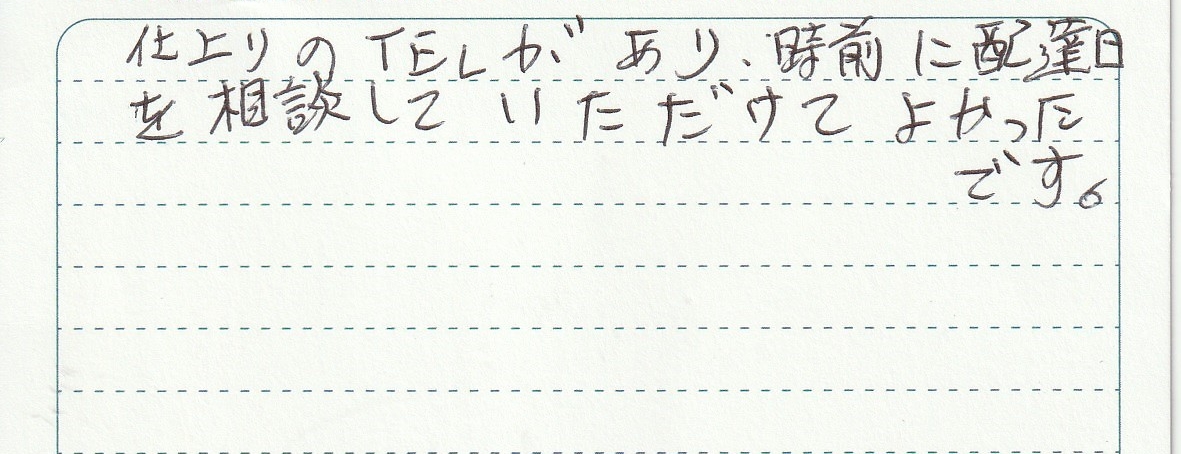 仕上りのTELがあり、時前に配達日
を相談していただけてよかった
です。